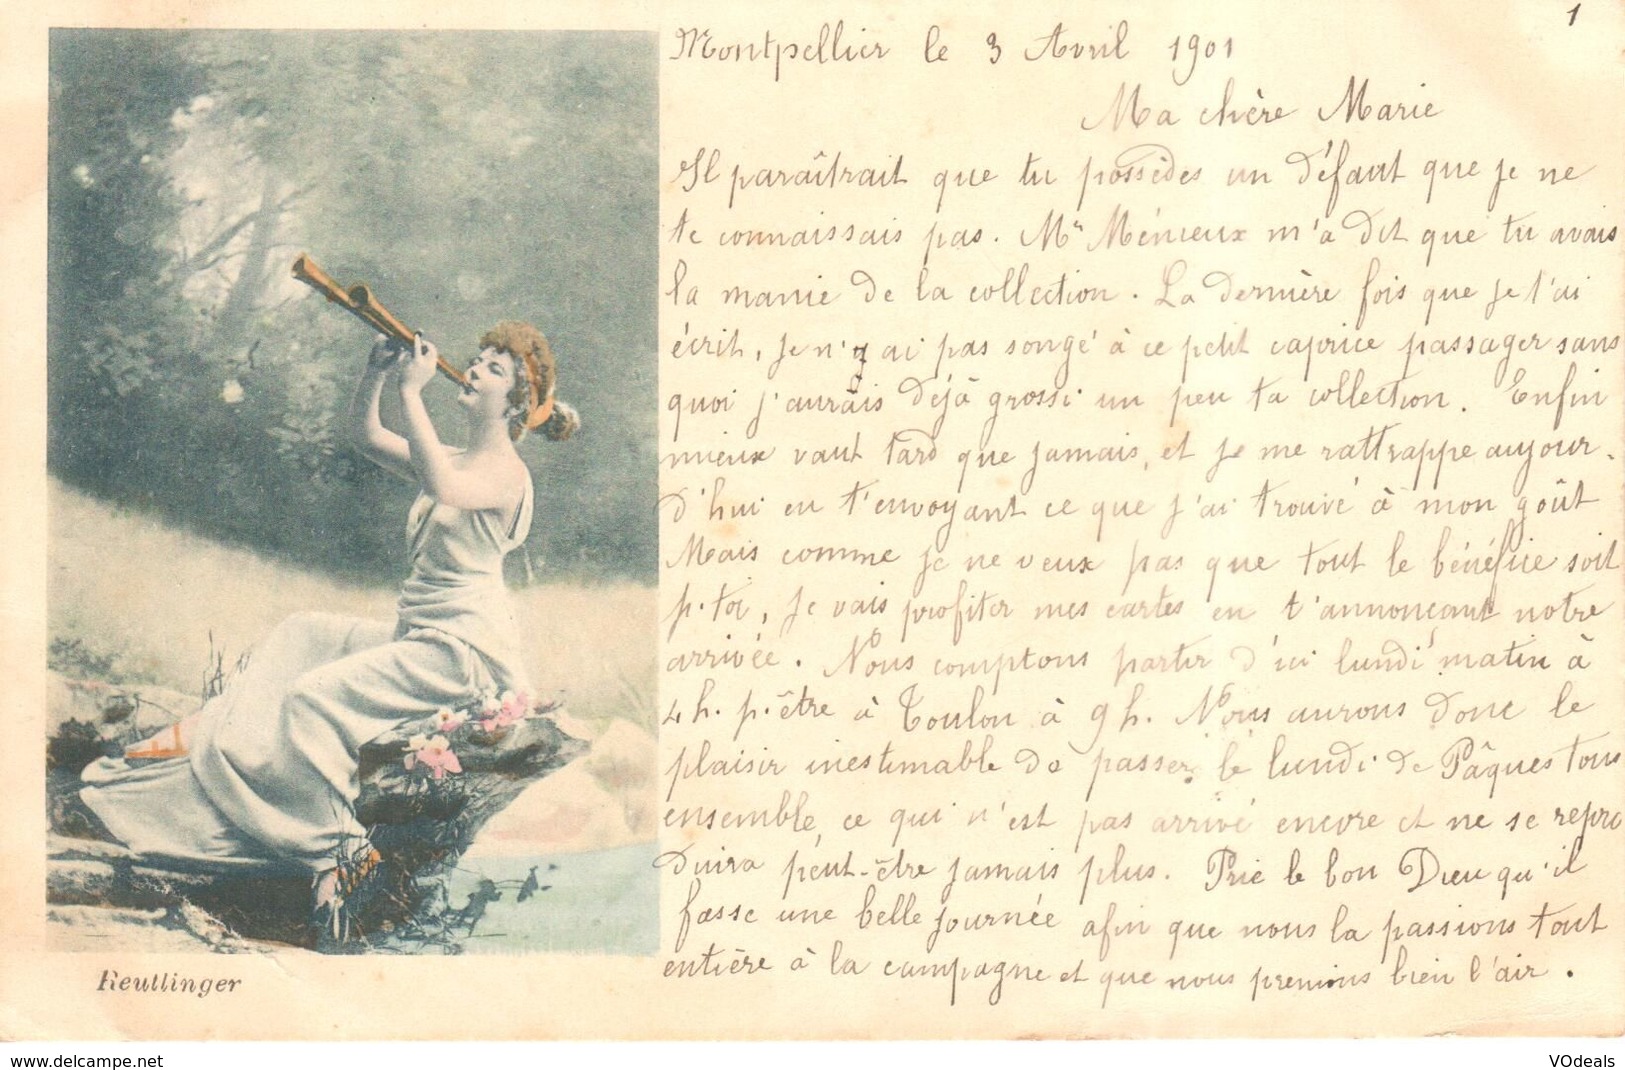 1
Montpellier le 3 Avril 1901
Ma chère Marie
Il paraîtrait que tu possèdes un défaut que je ne
te connaissais pas. Mr Ménieux m'a dit que tu avais
la manie de la collection. La dernière fois que je t'ai
écrit, je n'y ai pas songé à ce petit caprice passager sans
quoi j'aurais déjà grossi un peu ta collection. Enfin
mieux vaut tard que jamais, et je me rattrappe aujour-
d'hui en t'envoyant ce que j'ai trouvé à mon goût
Mais comme je ne veux pas que tout le bénéfice soit
p. toi, je vais profiter mes cartes en t'annonçant notre
arrivée. Nous comptons partir d'ici lundi matin à
4 h. p. être à Toulon à 9 h. Nous aurons donc le
plaisir inestimable de passer le lundi de Pâques tous
ensemble, ce qui n'est pas arrivé encore et ne se repro
duira peut-être jamais plus. Prie le bon Dieu qu'il
fasse une belle journée afin que nous la passions tout
entière à la campagne et que nous prenions bien l'air.
Reutlinger
www.delcampe.net
VOdeals